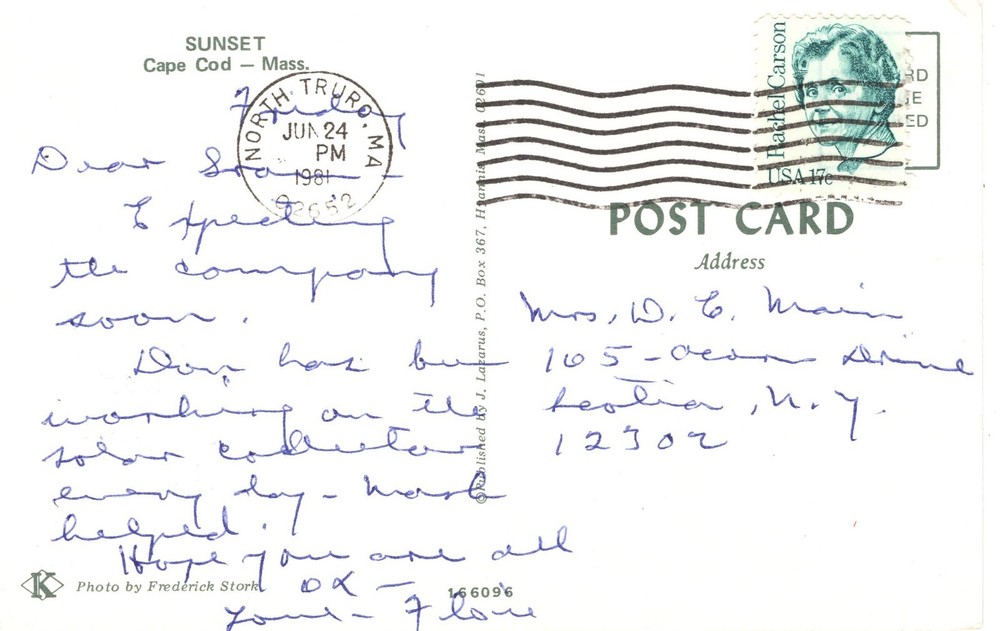 SUNSET
Cape Cod — Mass.
NORTH TRURO, MA
JUN 24
PM
1981
02652
Friday
Dear
Expecting
the company
soon.
Don has been
working on the
solar collector
every day - Mark
helped.
Hope you are all
OK -
Love - Flore
Published by J. Lazarus, P.O. Box 367, Hyannis, Mass. 02601
Rachel Carson
USA 17c
POST CARD
Address
Mrs. D. C. Main
105 - Acorn Drive
Scotia, N.Y.
12302
K
Photo by Frederick Stork
166096